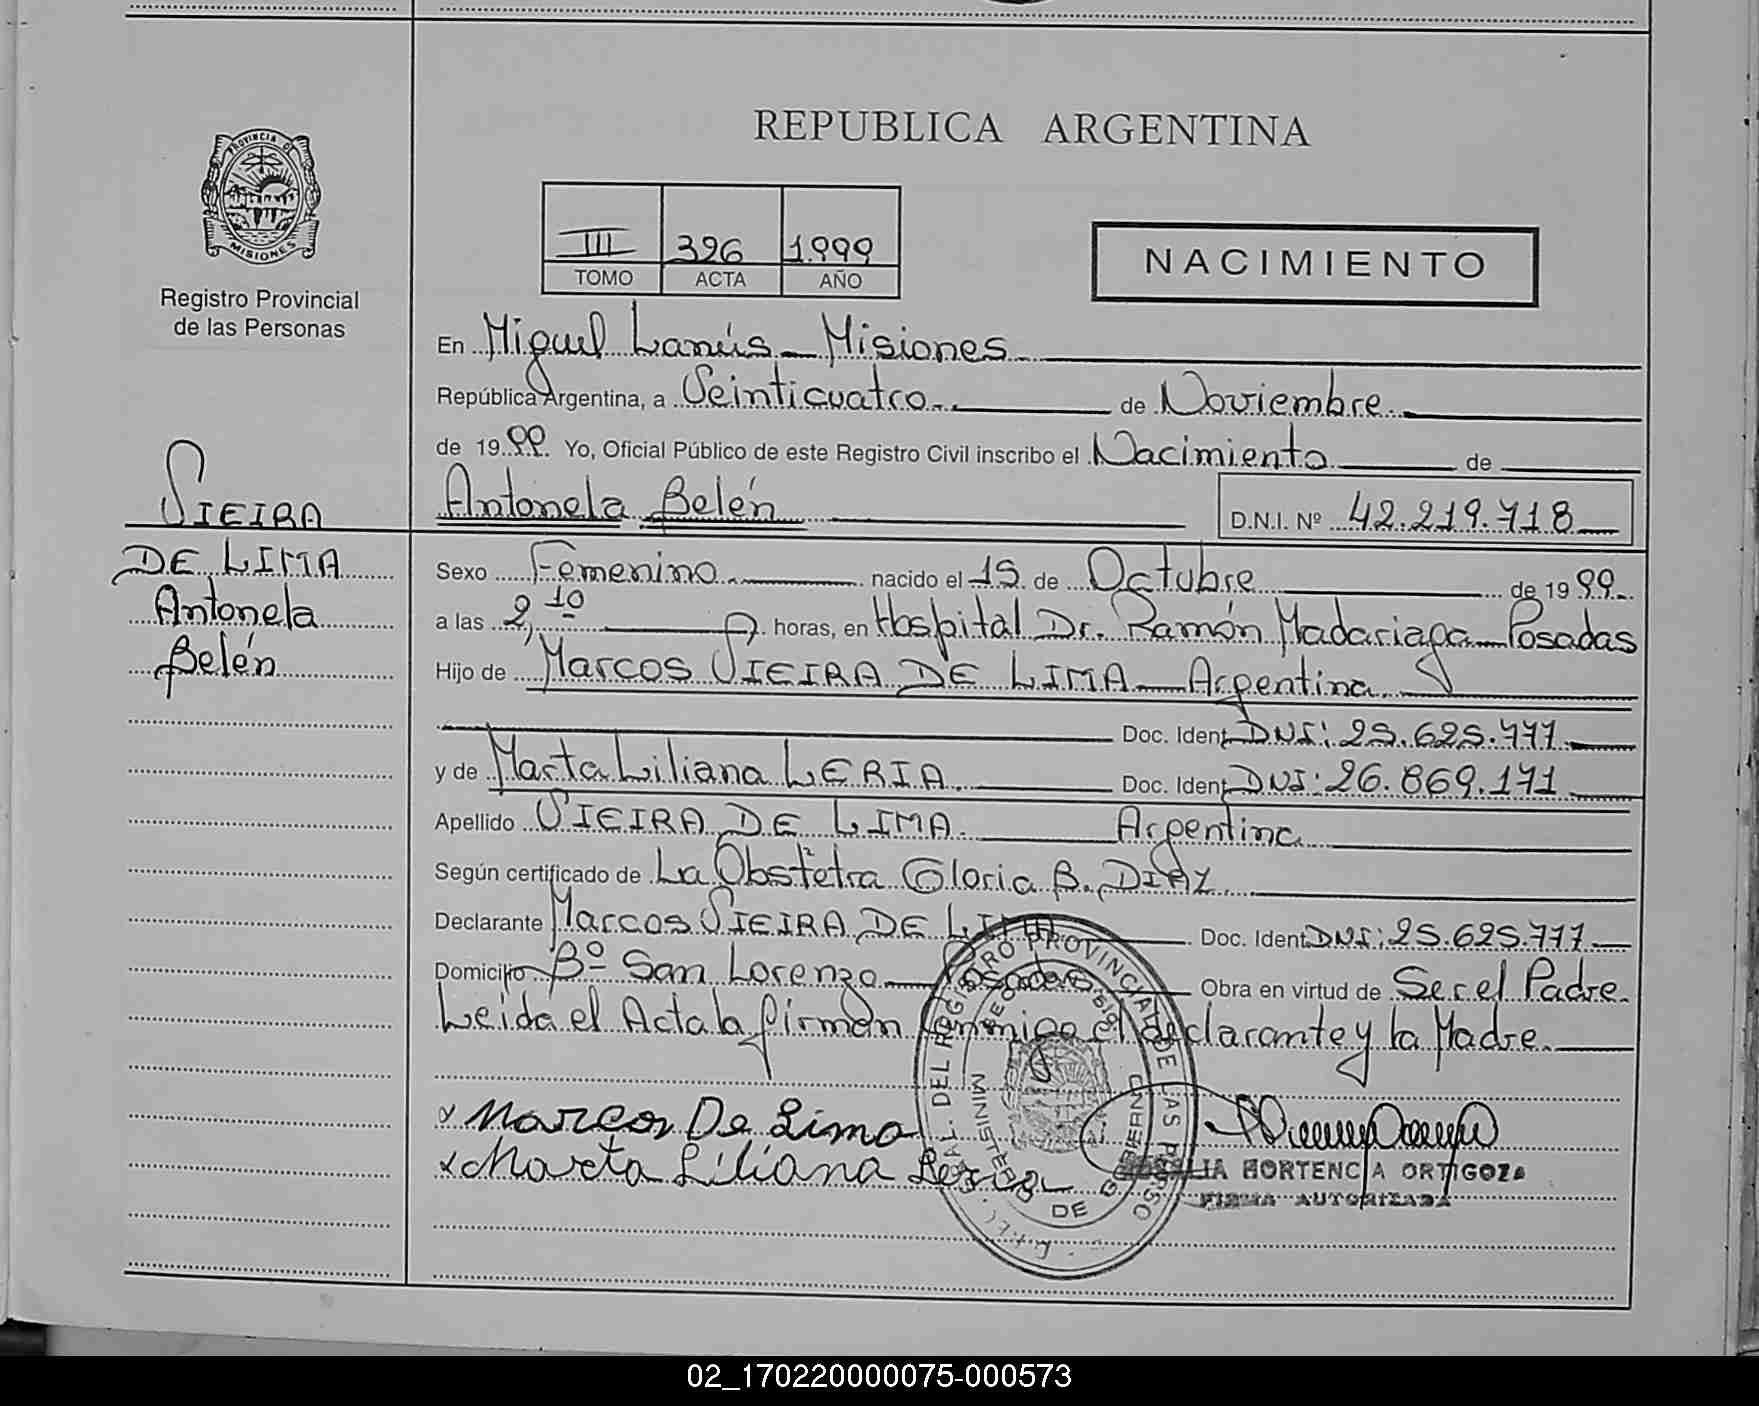 REPUBLICA ARGENTINA
PROVINCIA DE
MISIONES
Registro Provincial
de las Personas
III 396 1.999
TOMO ACTA AÑO
NACIMIENTO
En Miguel Lanús - Misiones
República Argentina, a Veinticuatro de Noviembre
de 1999 Yo, Oficial Público de este Registro Civil inscribo el Nacimiento de
VIEIRA
DE LIMA
Antonela
Belén
Antonela Belén D.N.I. Nº 42.219.718
Sexo Femenino nacido el 15 de Octubre de 1999
a las 2,10 horas, en Hospital Dr. Ramón Madariaga - Posadas
Hijo de Marcos VIEIRA DE LIMA - Argentina
Doc. Ident. DNI: 25.625.777
y de Marta Liliana LERIA Doc. Ident. DNI: 26.869.171
Apellido VIEIRA DE LIMA Argentina
Según certificado de La Obstetra Gloria B. DIAZ
Declarante Marcos VIEIRA DE LIMA Doc. Ident. DNI: 25.625.777
Domicilio Bº San Lorenzo - Posadas Obra en virtud de Ser el Padre.
Leída el Acta la firman conmigo el declarante y la Madre.
x Marcos De Lima
x Marta Liliana Leria
HORTENCIA ORTIGOZA
FIRMA AUTORIZADA
DEL REGISTRO PROVINCIAL DE LAS
MINISTERIO DE GOBIERNO
02_170220000075-000573